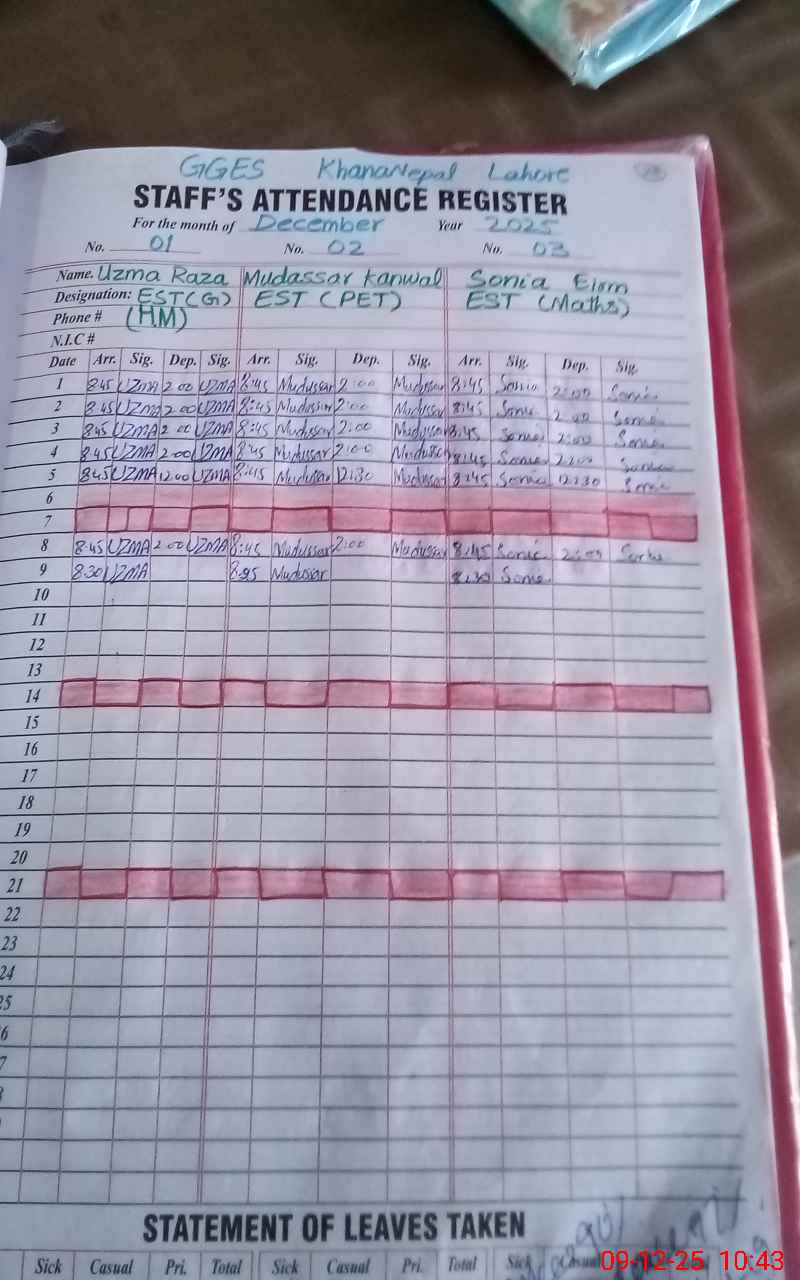 GGES Khananepal Lahore
STAFF'S ATTENDANCE REGISTER
For the month of December Year 2025
No. 01 No. 02 No. 03
Name. Uzma Raza Mudassar Kanwal Sonia
Designation: EST(G) EST (PET) EST (Maths)
Phone # (HM)
N.I.C #
Date Arr. Sig. Dep. Sig. Arr. Sig. Dep. Sig. Arr. Sig. Dep. Sig.
1 8:45 UZMA 2:00 UZMA 8:45 Mudassar 2:00 Mudassar 8:45 Sonia 2:00 Sonia
2 8:45 UZMA 2:00 UZMA 8:45 Mudassar 2:00 Mudassar 8:45 Sonia 2:00 Sonia
3 8:45 UZMA 2:00 UZMA 8:45 Mudassar 2:00 Mudassar 8:45 Sonia 2:00 Sonia
4 8:45 UZMA 2:00 UZMA 8:45 Mudassar 2:00 Mudassar 8:45 Sonia 2:00 Sonia
5 8:45 UZMA 12:00 UZMA 8:45 Mudassar 12:30 Mudassar 8:45 Sonia 12:30 Sonia
6
7
8 8:45 UZMA 2:00 UZMA 8:45 Mudassar 2:00 Mudassar 8:45 Sonia 2:00 Sonia
9 8:30 UZMA Mudassar Sonia
10
11
12
13
14
15
16
17
18
19
20
21
22
23
24
25
6
7
STATEMENT OF LEAVES TAKEN
Sick Casual Pri. Total Sick Casual Pri. Total Sick Casual
09-12-25 10:43